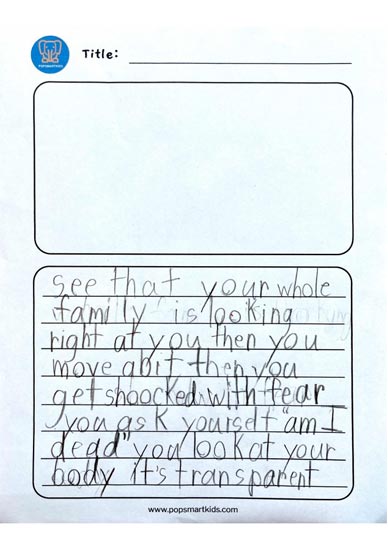 POPSMARTKIDS
Title:
see that your whole
family is looking
right at you then you
move abit then you
get shoocked with fear
you ask yourself "am I
dead" you look at your
body it's transparent
www.popsmartkids.com